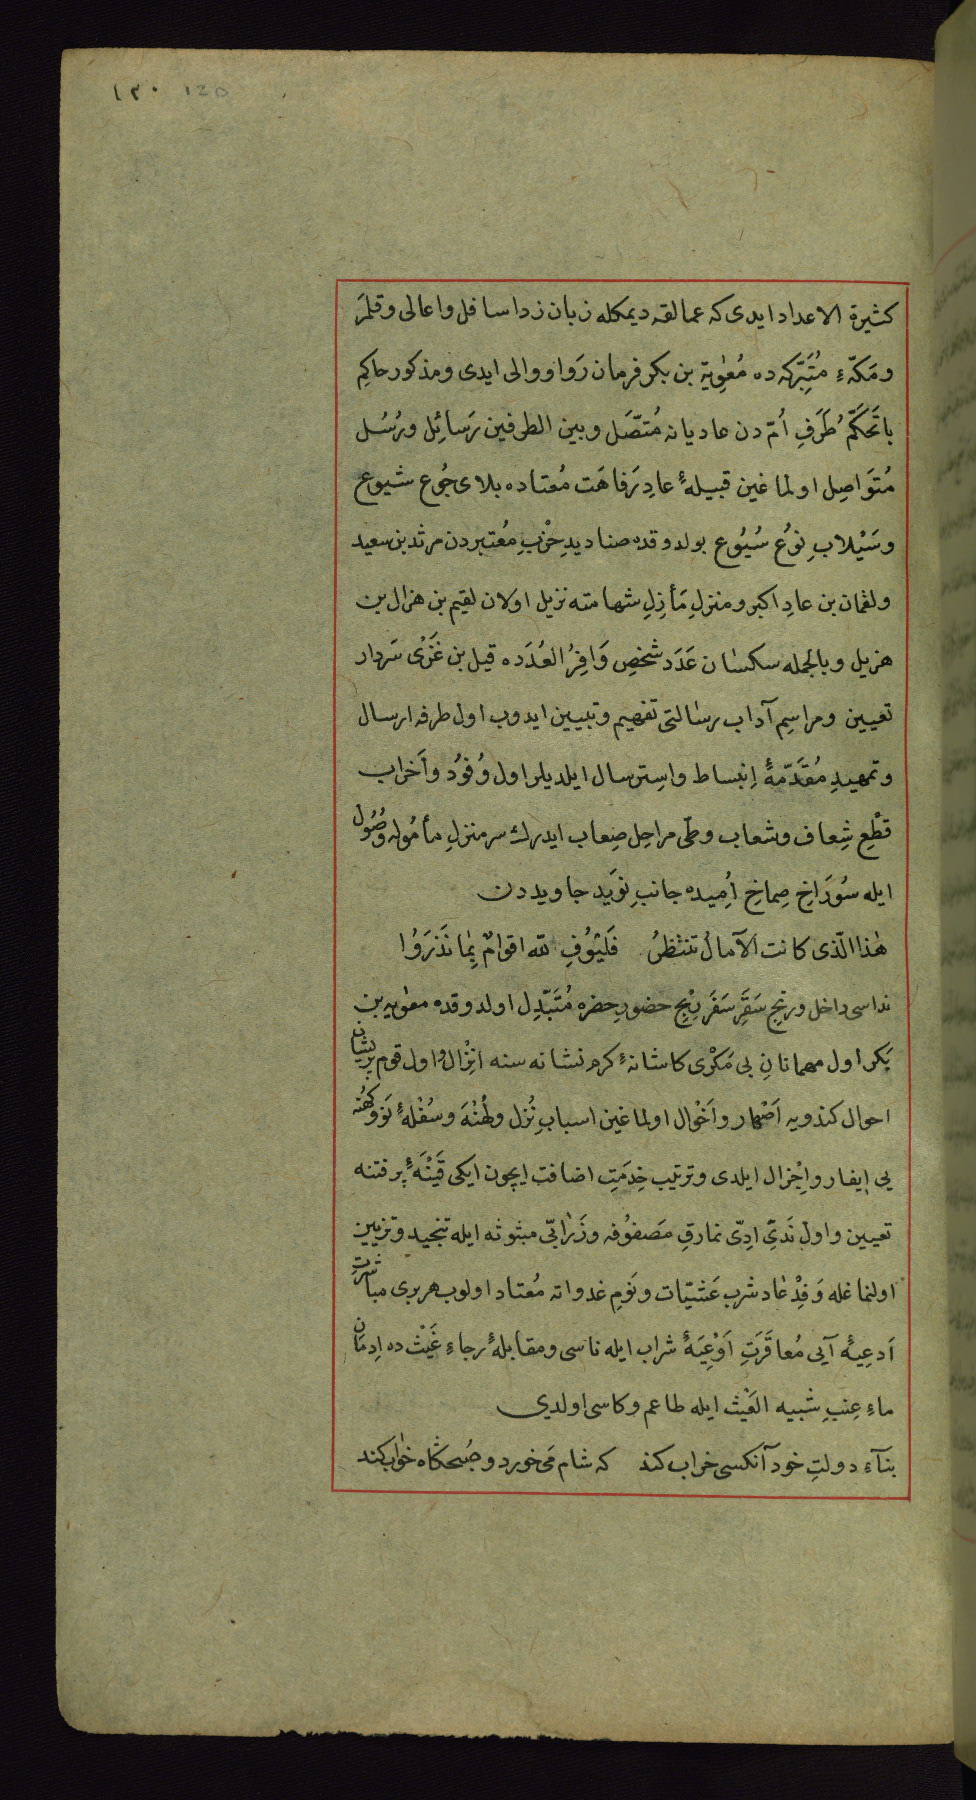 ١٣٠ 120
كثيرة الاعداد ايدى كه عمالقه ديمكله زبان زد اسافل واعالى وقلمرَ
ومَكّهٔ مُتَبَرّكه ده مُعٰوِية بن بكر فرمان رَوا ووالى ايدى ومذكور حاكِم
باتَحَكّم طَرَفِ اُمّ دن عاديانه مُتّصَل وبين الطرفين رَسائِل ورُسُل
مُتَواصِل اولماغين قبيلهٔ عادِ رَفاهَت مُعتاده بلاى جُوع شيوع
وسَيْلابِ نوُع سُيُوع بولدوقده صناديدِ حِزْبِ مُعتبردن مرثد بن سعيد
ولقمان بن عادِ اكبر ومنزلِ مَأزِلِ شهامته نزيل اولان لقيم بن هزال بن
هزيل وبالجمله سكسان عَدَد شخصِ وَافِرُ العُدَده قيل بن غَنزى سَردار
تعيين ومراسِمِ آداب رسالتى تفهيم وتبيين ايدوب اول طرفه ارسال
وتمهيدِ مُقَدّمهٔ اِنبساط واسِترسال ايلديلر اول وُفوُد وأحْزاب
قطْعِ شِعاف وشعاب وطىّ مراحِل صِعاب ايدرك سر منزلِ مأمُوله وُصُول
ايله سُورَاخِ صِماخِ اُمِيده جانبِ نوَيدِ جاويددن
هٰذا الّذى كانت الآمالُ تنتظرُ فَليُوُفِ لله اقوامٌ بِمٰا نَذرَوُا
نداسى داخل ورنجِ سَقَرِ سَفَر بِكنْجِ حضورِ حضره مُتَبَدِّل اولدوقده معٰويه بن
بَكر اول مهمانانِ بى مَكْرى كاشانهٔ كرم نشانه سنه انِزْال واول قوم پريشان
احوال كندويه اَصْهار واَخْوال اولماغين اسبابِ نُزل ولُهْنهَ وسُفْلهٔ نَو وكُهْنه
يى اِيفار واِجْزال ايلدى وترتيب خِدمَتِ اضافت ايچون ايكى قَيْنَهٔ پر فتنه
تعيين واول نَدىِّ ادِىّ نمارقِ مَصفوُفه وزَرٰابىّ مبثوثه ايله تنجيد وتزيين
اولنماغله وَفِدْ عٰاد شرب عَشيّات ونَومِ غدواته مُعتاد اولوب هر برى مباشرتِ
اَدعِيهٔ آيى مُعاقَرَتِ اَوْعِيَهٔ شراب ايله ناسى ومقابلهٔ رجاءِ غَيْث ده اِدمان
ماءِ عِنبِ شبيه الغَيْث ايله طاعم وكاسى اولدى
بنآءِ دولتِ خود آنكسى خراب كند كه شام مَى خورد و صُبحكاه خواب كند